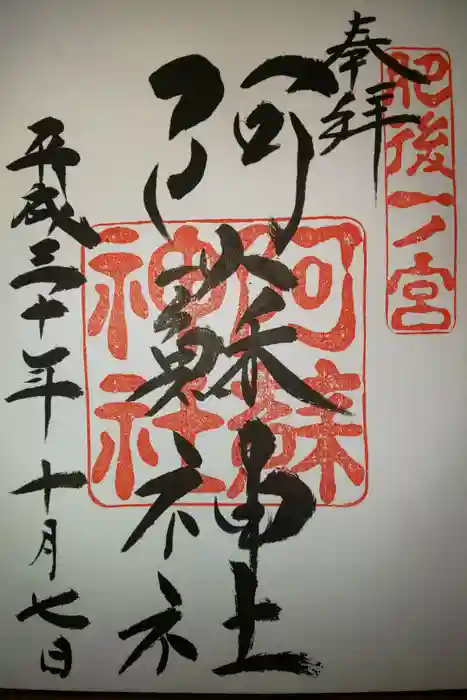 肥後一ノ宮
奉拝
阿蘇神社
阿蘇神社
平成三十年十月七日